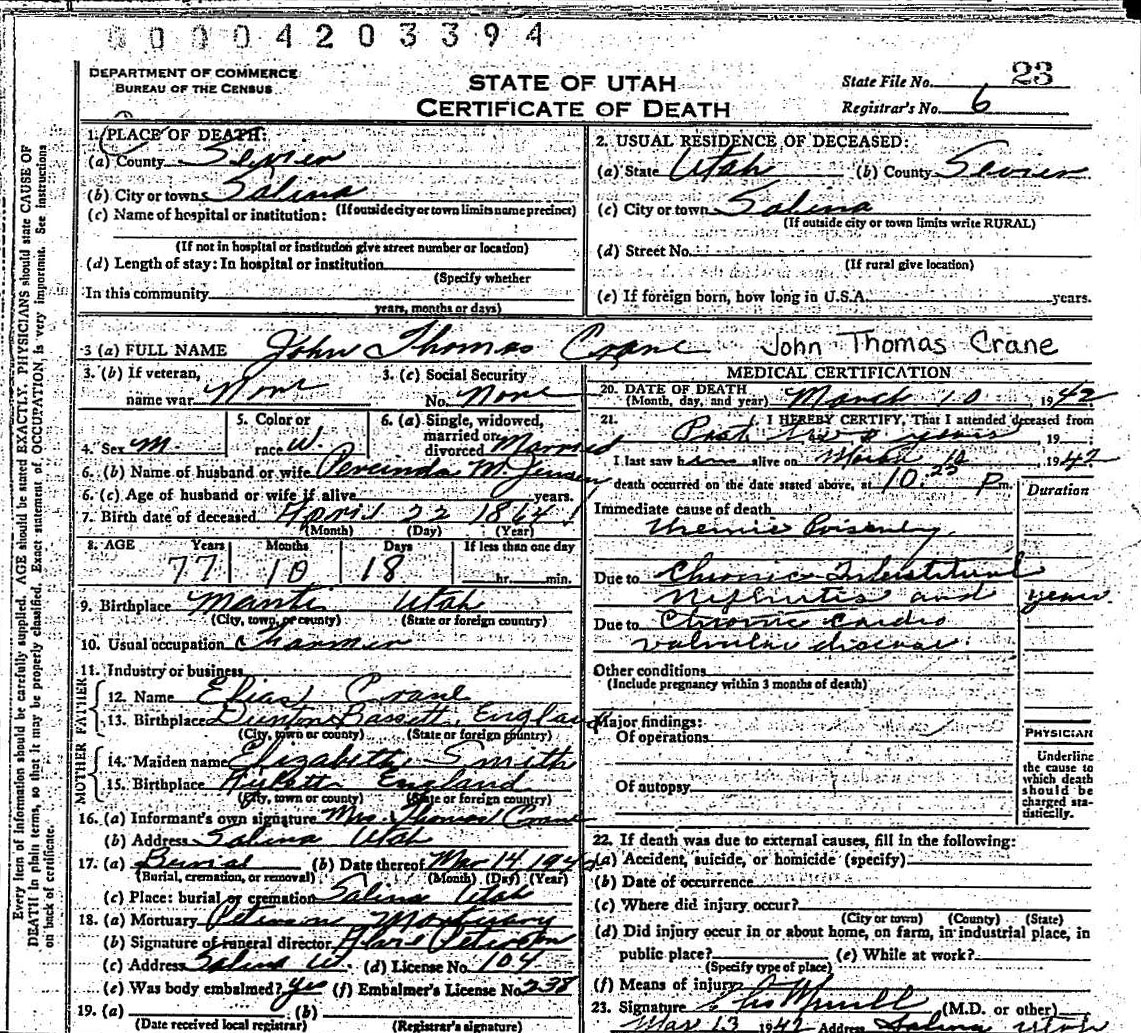 00004203394
DEPARTMENT OF COMMERCE
BUREAU OF THE CENSUS
STATE OF UTAH
CERTIFICATE OF DEATH
State File No. 23
Registrar's No. 6
1. PLACE OF DEATH:
(a) County Sevier
(b) City or town Salina
(c) Name of hospital or institution: (If outside city or town limits name precinct)
(If not in hospital or institution give street number or location)
(d) Length of stay: In hospital or institution
(Specify whether
In this community
years, months or days)
2. USUAL RESIDENCE OF DECEASED:
(a) State Utah (b) County Sevier
(c) City or town Salina
(If outside city or town limits write RURAL)
(d) Street No.
(If rural give location)
(e) If foreign born, how long in U.S.A. years.
3 (a) FULL NAME John Thomas Crane John Thomas Crane
3. (b) If veteran,
name war None
3. (c) Social Security
No. None
4. Sex M.
5. Color or
race W.
6. (a) Single, widowed,
married or
divorced Married
6. (b) Name of husband or wife M. Jensen
6. (c) Age of husband or wife if alive years.
7. Birth date of deceased April 22 1864
(Month) (Day) (Year)
8. AGE Years Months Days If less than one day
77 10 18 hr. min.
9. Birthplace Manti Utah
(City, town, or county) (State or foreign country)
10. Usual occupation
11. Industry or business
FATHER
12. Name Elias Crane
13. Birthplace Dunton Bassett England
(City, town or county) (State or foreign country)
MOTHER
14. Maiden name Elizabeth Smith
15. Birthplace England
(City, town or county) (State or foreign country)
16. (a) Informant's own signature Mrs. Thomas Crane
(b) Address Salina Utah
17. (a) Burial (b) Date thereof Mar 14 1942
(Burial, cremation, or removal) (Month) (Day) (Year)
(c) Place: burial or cremation Salina Utah
18. (a) Mortuary Peterson Mortuary
(b) Signature of funeral director Peterson
(c) Address Salina U. (d) License No. 104
(e) Was body embalmed? yes (f) Embalmer's License No. 238
19. (a) (b)
(Date received local registrar) (Registrar's signature)
MEDICAL CERTIFICATION
20. DATE OF DEATH
(Month, day, and year) March 10 1942
21. I HEREBY CERTIFY, That I attended deceased from
Past two years 19
I last saw him alive on March 10 1942
death occurred on the date stated above, at 10:25 P m.
Duration
Immediate cause of death
Uremic Poisoning
Due to Chronic Interstitial
Nephritis and years
Due to Chronic Cardio
valvular disease
Other conditions
(Include pregnancy within 3 months of death)
Major findings:
Of operations
Of autopsy
PHYSICIAN
Underline
the cause to
which death
should be
charged sta-
tistically.
22. If death was due to external causes, fill in the following:
(a) Accident, suicide, or homicide (specify)
(b) Date of occurrence
(c) Where did injury occur?
(City or town) (County) (State)
(d) Did injury occur in or about home, on farm, in industrial place, in
public place? (e) While at work?
(Specify type of place)
(f) Means of injury
23. Signature (M.D. or other)
Mar 13 1942 Address Salina Utah
Every item of information should be carefully supplied. AGE should be stated EXACTLY. PHYSICIANS should state CAUSE OF
DEATH in plain terms, so that it may be properly classified. Exact statement of OCCUPATION is very important. See instructions
on back of certificate.